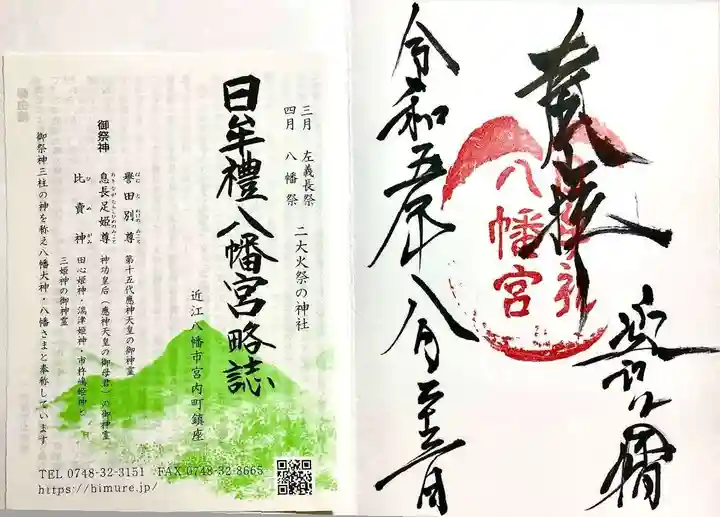 奉拝
近江八幡
八幡宮
令和五年八月二十三日
三月 左義長祭
四月 八幡祭
二大火祭の神社
日牟禮八幡宮略誌
近江八幡市宮内町鎮座
御祭神
譽田別尊 第十五代應神天皇の御神霊
息長足姫尊 神功皇后(應神天皇の御母君)の御神霊
比賣神 田心姫神・湍津姫神・市杵嶋姫神と
三姫神の御神霊
御祭神三柱の神を称え八幡大神・八幡さまと奉称しています
TEL 0748-32-3151 FAX 0748-32-8665
https://himure.jp/